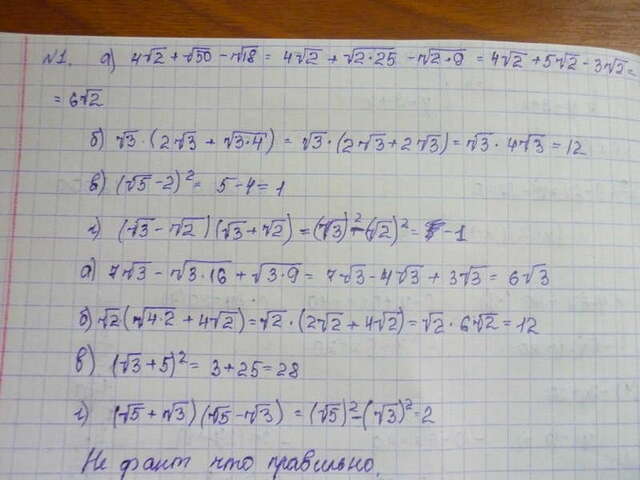 №1. а) 4√2 + √50 - √18 = 4√2 + √2·25 - √2·9 = 4√2 + 5√2 - 3√2 =
= 6√2
б) √3 · (2√3 + √3·4) = √3 · (2√3 + 2√3) = √3 · 4√3 = 12
в) (√5 - 2)² = 5 - 4 = 1
г) (√3 - √2)(√3 + √2) = (√3)² - (√2)² = - 1
а) 7√3 - √3·16 + √3·9 = 7√3 - 4√3 + 3√3 = 6√3
б) √2(√4·2 + 4√2) = √2 · (2√2 + 4√2) = √2 · 6√2 = 12
в) (√3 + 5)² = 3 + 25 = 28
г) (√5 + √3)(√5 - √3) = (√5)² - (√3)² = 2
Не факт что правильно.